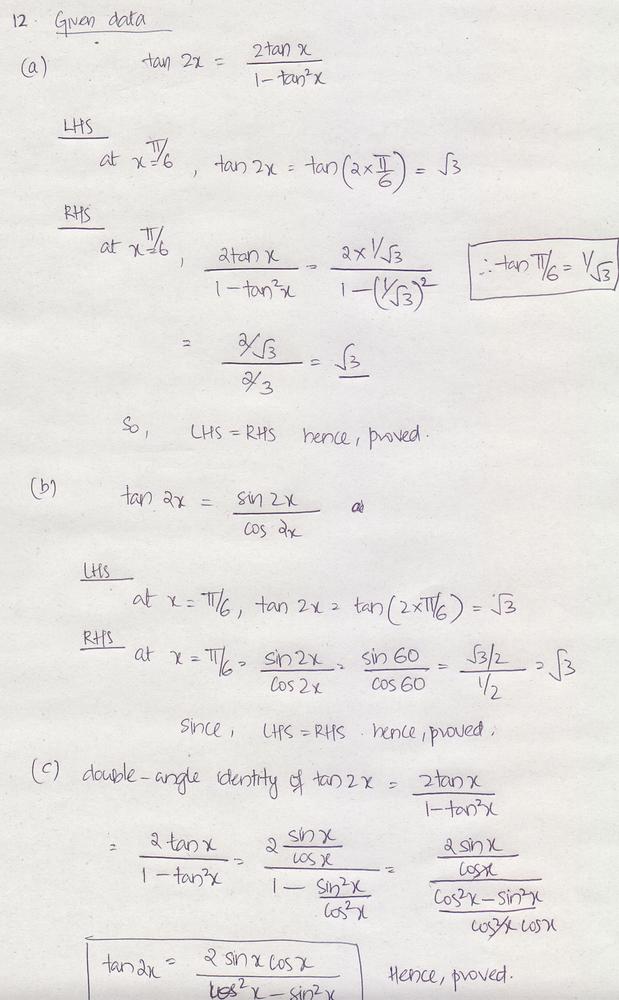 12. Given data
(a) tan 2x = 2tan x / 1 - tan²x
LHS
at x=π/6 , tan 2x = tan(2×π/6) = √3
RHS
at x=π/6 , 2tan x / 1 - tan²x = 2×1/√3 / 1-(1/√3)² ∴ tan π/6 = 1/√3
= 2/√3 / 2/3 = √3
So, LHS = RHS hence, proved.
(b) tan 2x = sin 2x / cos 2x
LHS
at x = π/6, tan 2x = tan(2×π/6) = √3
RHS at x = π/6 = sin 2x / cos 2x = sin 60 / cos 60 = √3/2 / 1/2 = √3
Since, LHS = RHS hence, proved.
(c) double-angle identity of tan 2x = 2tan x / 1-tan²x
= 2 tan x / 1 - tan²x = 2 sin x / cos x / 1 - sin²x / cos²x = 2 sin x / cos x / cos²x - sin²x / cos²x cos x
tan 2x = 2 sin x cos x / cos²x - sin²x Hence, proved.